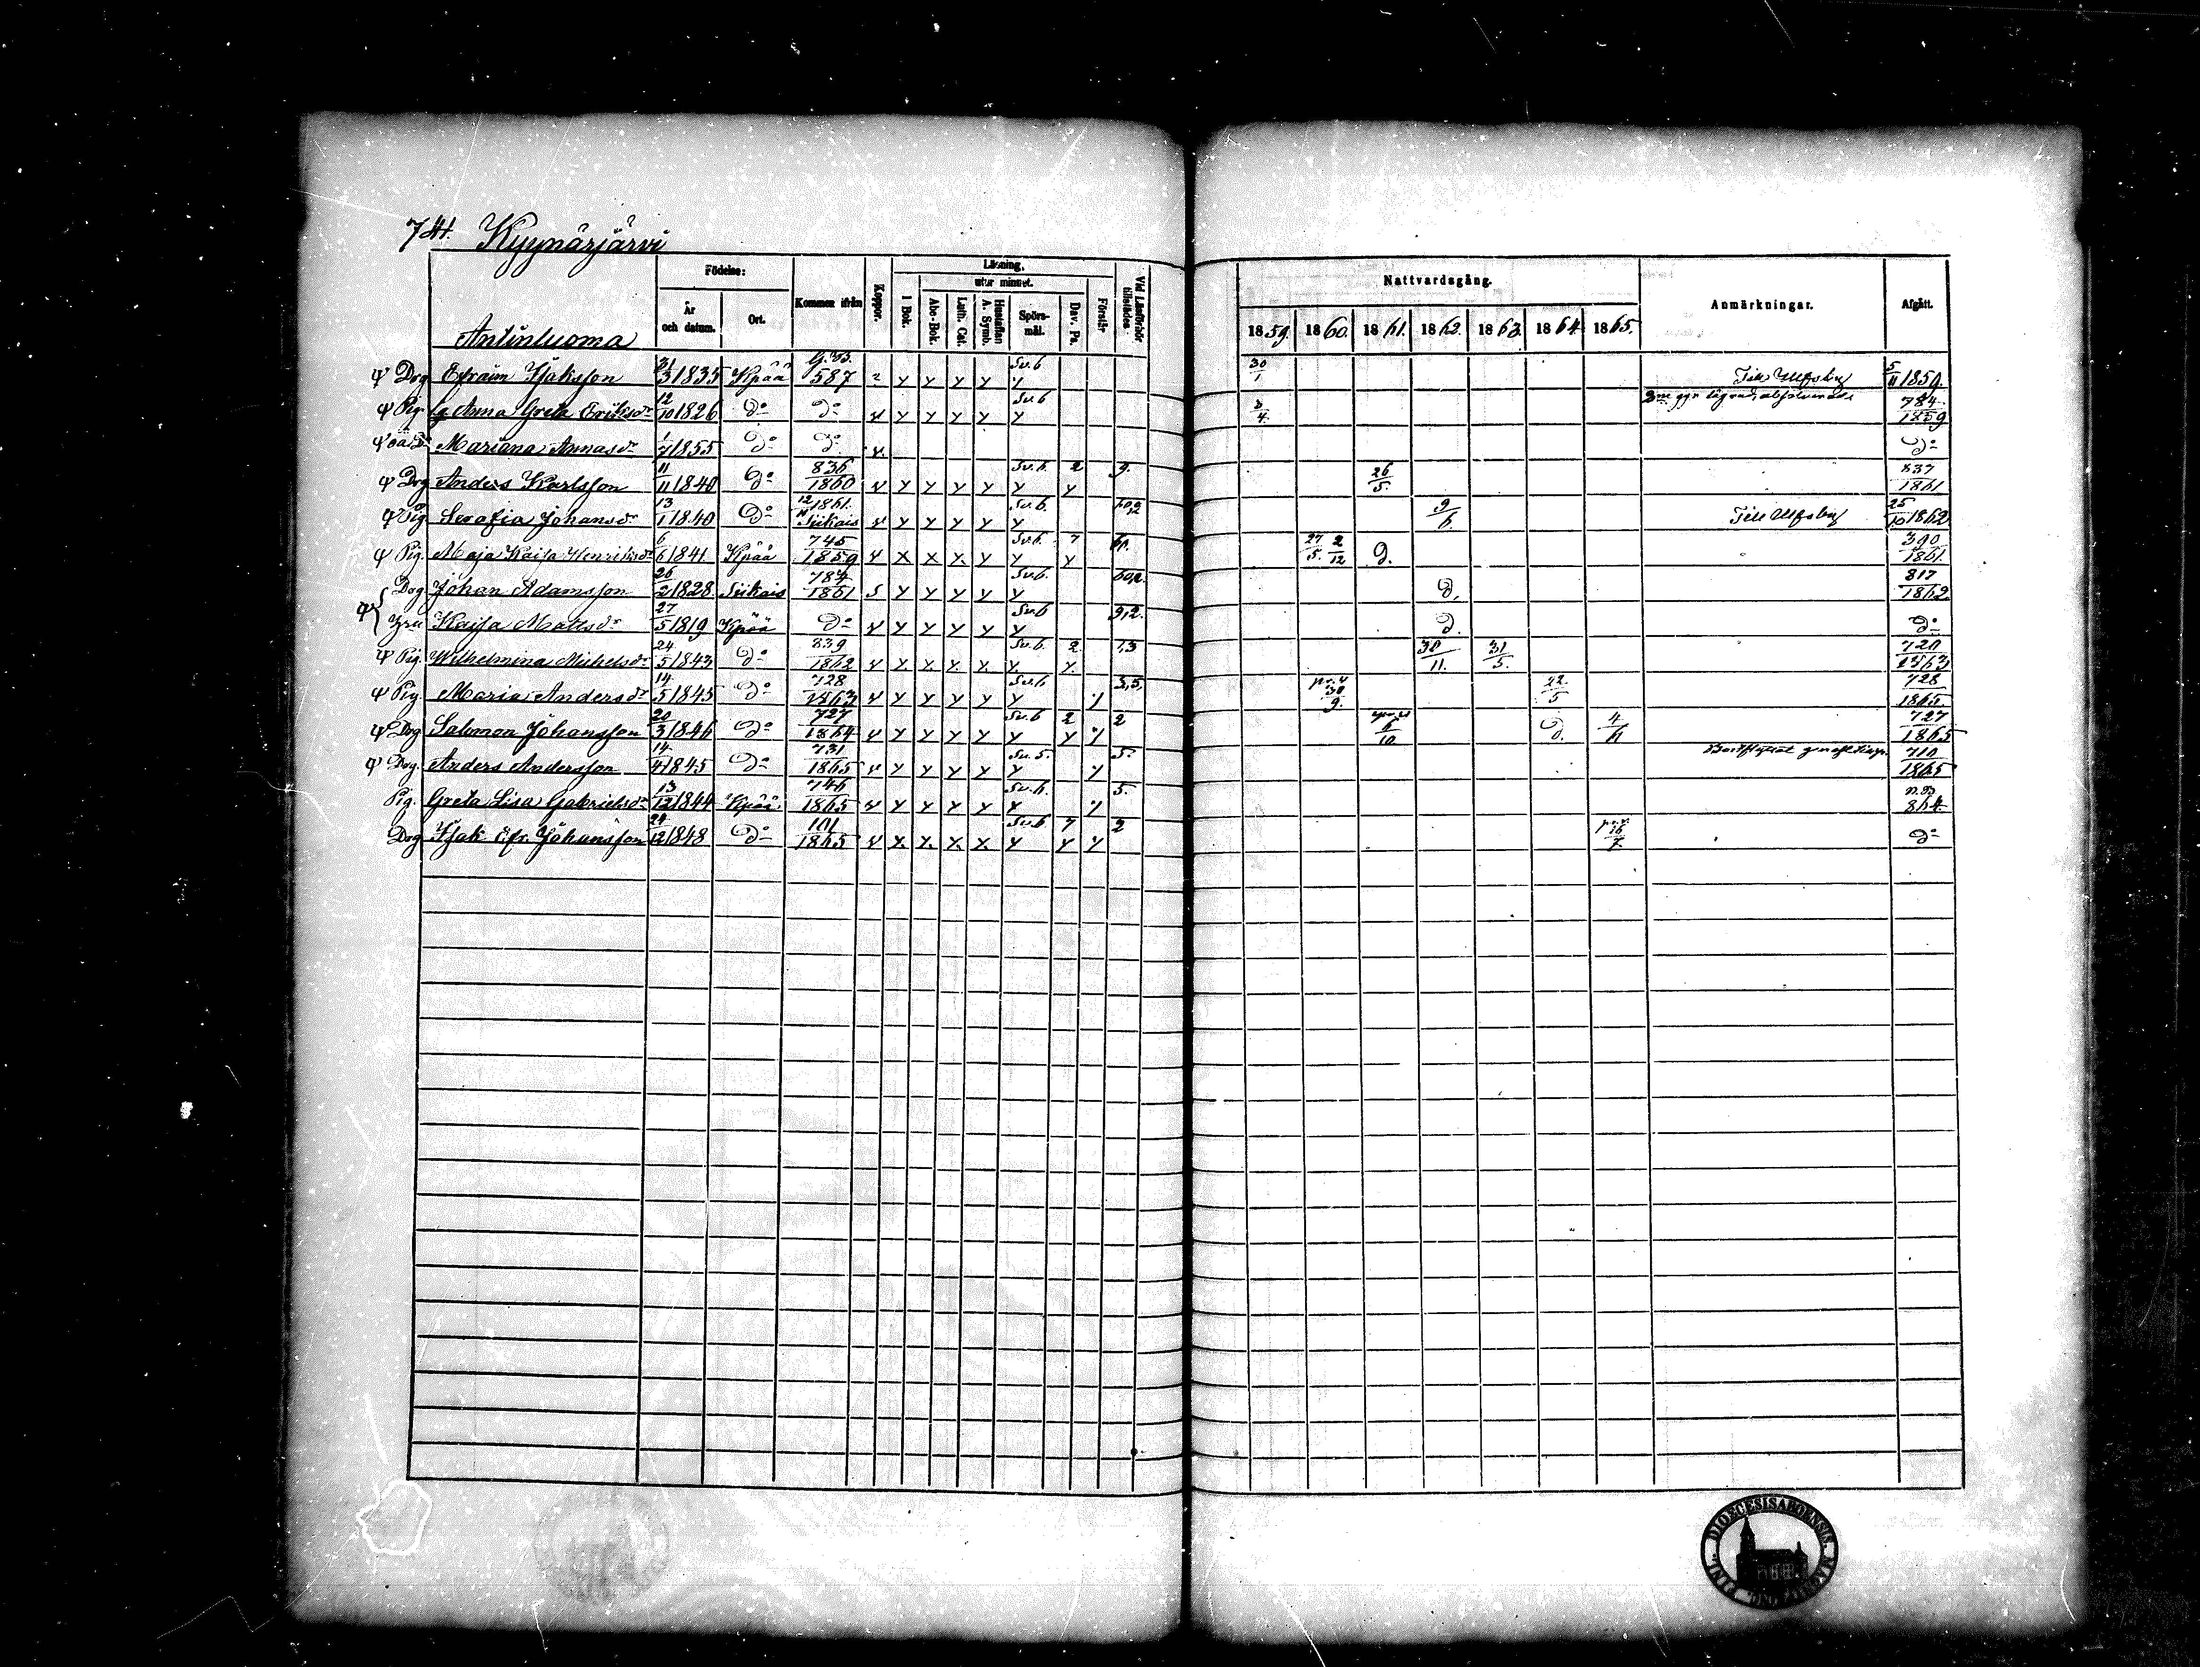 741. Kyynärjärvi
Födelse: Kommen ifrån Koppor. Läsning, Vid Läsförhör tillstädes
utur minnet.
År och datum. Ort. I Bok. Abc-Bok. Luth. Cat. Hustaflan A. Symb. Spörs-mål. Dav. Ps. Förstår
Nattvardsgång. Anmärkningar. Afgått.
1859. 1860. 1861. 1862. 1863. 1864. 1865.
Antinluoma
Drg Efraim Isaksson 31/3 1835 Kpää G.B. 587 Sv.b 30/1 Till Ulfsby 5/11 1859.
Pig. Anna Greta Eriksdr 12/10 1826 do do Sv.b 3/4 784/1859
Mariana Annasdr 1/7 1855 do do do
Drg Anders Karlsson 11/11 1840 do 836/1860 Sv.b. 2 9. 26/5. 837/1861
Pig. Serafia Johansdr 13/1 1840 do 1861. Siikais Sv.b. 9/6 Till Ulfsby 25/10 1862
Pig. Maja Kaisa Henriksdr 6/6 1841 Kpää 745/1859 Sv.b. 7 27/5. 2/12 9. 390/1861.
Drg Johan Adamsson 26/2 1828 Siikais 784/1861 Sv.b. d. 817/1862
Hru Kaisa Mattsdr 27/5 1819 Kpää do Sv.b 9,2. d. do
Pig. Wilhelmina Michelsdr 24/5 1843 do 839/1862 Sv.b. 2. 1,3 30/11. 31/5. 720/1863
Pig Maria Andersdr 14/5 1845 do 728/1863 Sv.b 3,5, 30/9. 22/5 728/1865.
Drg Salomon Johansson 20/3 1846 do 727/1864 Sv.b 2 2 6/10 d. 4/6 727/1865
Drg. Anders Andersson 14/4 1845 do 731/1865 Sv.5. 5. 710/1865
Pig. Greta Lisa Gabrielsdr 13/12 1844 Kpää. 746/1865 Sv.b. 5. n.B. 864.
Drg Isak Efr. Johansson 24/12 1848 do 101/1865 Sv.b 7 2 16/7. do
DIOECESIS ABOENSIS MAGNI DUC. FINL.